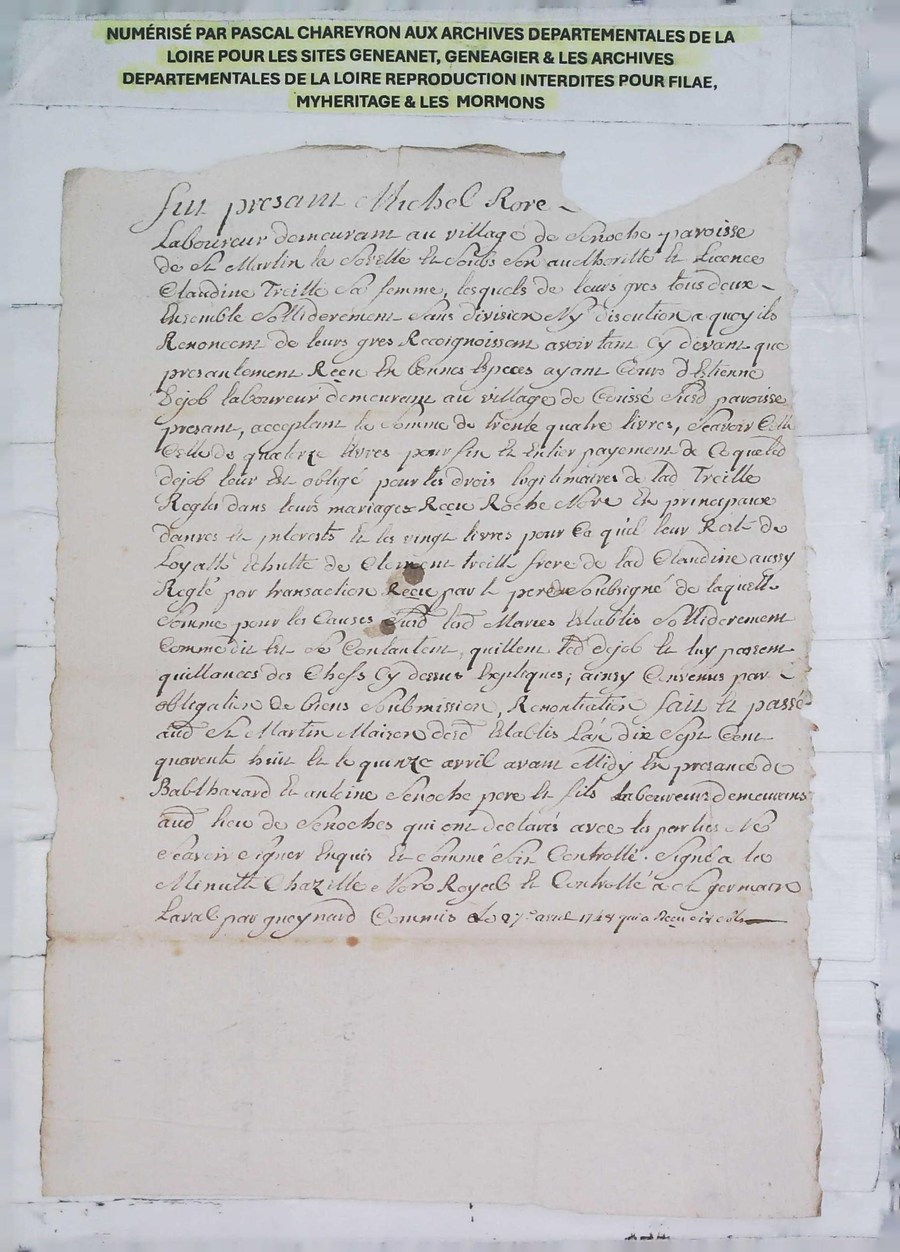 NUMÉRISÉ PAR PASCAL CHAREYRON AUX ARCHIVES DEPARTEMENTALES DE LA
LOIRE POUR LES SITES GENEANET, GENEAGIER & LES ARCHIVES
DEPARTEMENTALES DE LA LOIRE REPRODUCTION INTERDITES POUR FILAE,
MYHERITAGE & LES MORMONS
fut presant Michel Rore
Laboureur demeurant au village de Senoche paroisse
de St Martin la Sovetté et Soubs Son authoritté et Licence
Claudine Treille Sa femme, lesquels de leurs gres tous deux
Ensemble Solliderement Sans division Ny discution a quoy ils
Renoncent de leurs gres Recoignoissent avoir tant cy devant que
presantement Reçu En bonnes Especes ayant Cours d'Estienne
Dejob laboureur demeurant au village de Coussé Susd paroisse
presant, acceptant la Somme de trente quatre livres, Scavoir Celle
Celle de quatorze livres pour fin et Entier payement de Ce que led
dejob leur Est obligé pour les drois legitimaires de lad Treille
Reglés dans leurs mariages Reçu Roche Nore En principaux
danres et interests et les vingt livres pour Ce quil leur Reste de
Loyatté Echutte de Clement treille frere de lad Claudine aussy
Reglé par transaction Reçu par le pere du Soubsigné de laquelle
Somme pour les Causes Susd lesd Maries Establis Solliderement
Comme dit Est Se Contantent, quittent led dejob et luy passent
quittances des Chefs Cy dessus Expliques; ainsy Convenus par
obligation de biens Soubmission, Renontiation fait et passé
aud St Martin Maison desd Establis L'an dix Sept Cent
quarente huit et le quinze avril avant Midy En presance de
Balthazard et antoine Senoche pere et fils Laboureurs demeurans
aud lieu de Senoches qui ont declarés avec les parties Ne
Scavoir Signer Enquis et Sommé Soit Controllé. Signé a la
Minutte Chazelle Nore Royal et Controllé a St germain
Laval par gueynard Commis Le 27e avril 1748 qui a Reçu